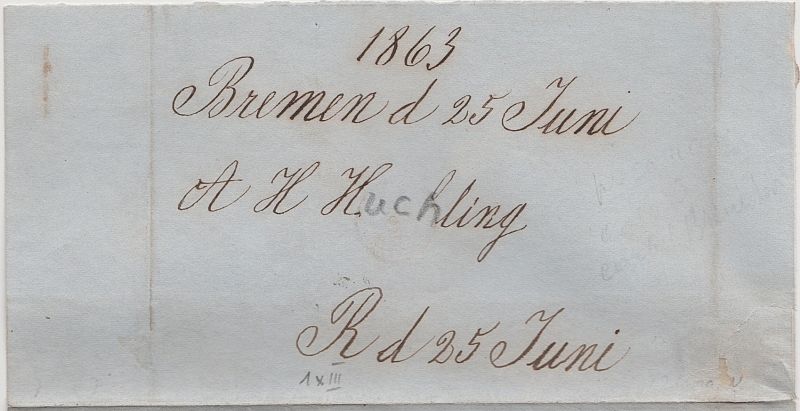 1863
Bremen d 25 Juni
A H Huchling
R d 25 Juni
1 x III